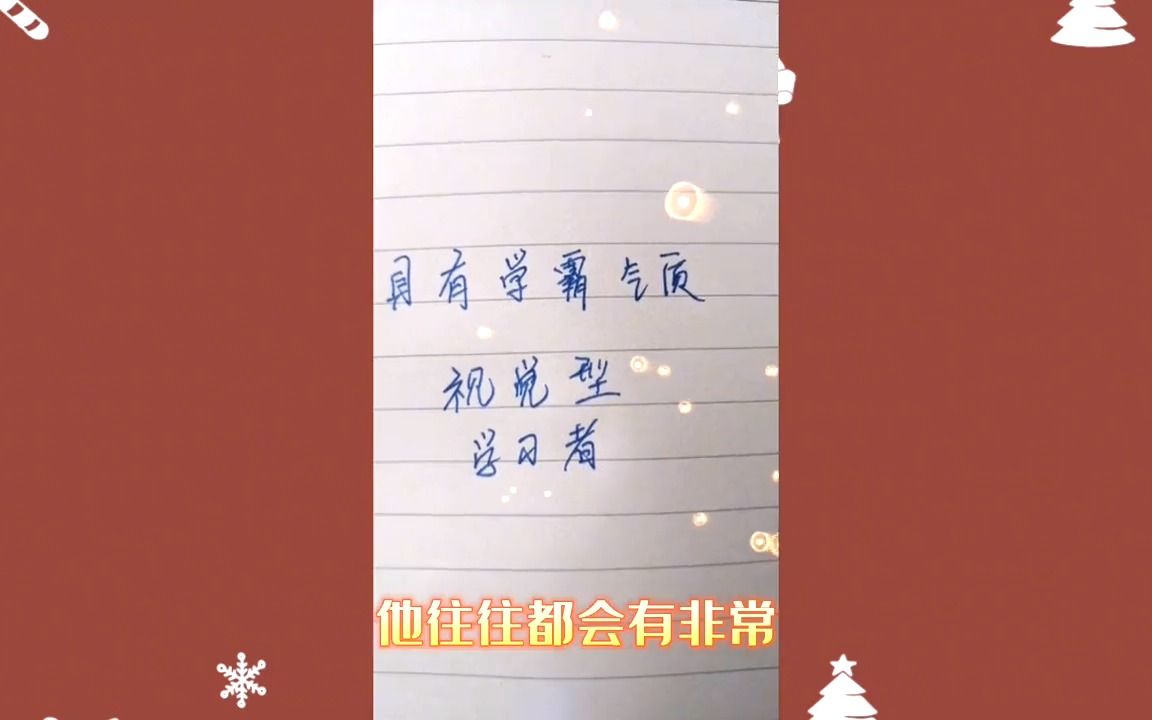 具有学霸气质
视觉型
学习者
他往往都会有非常